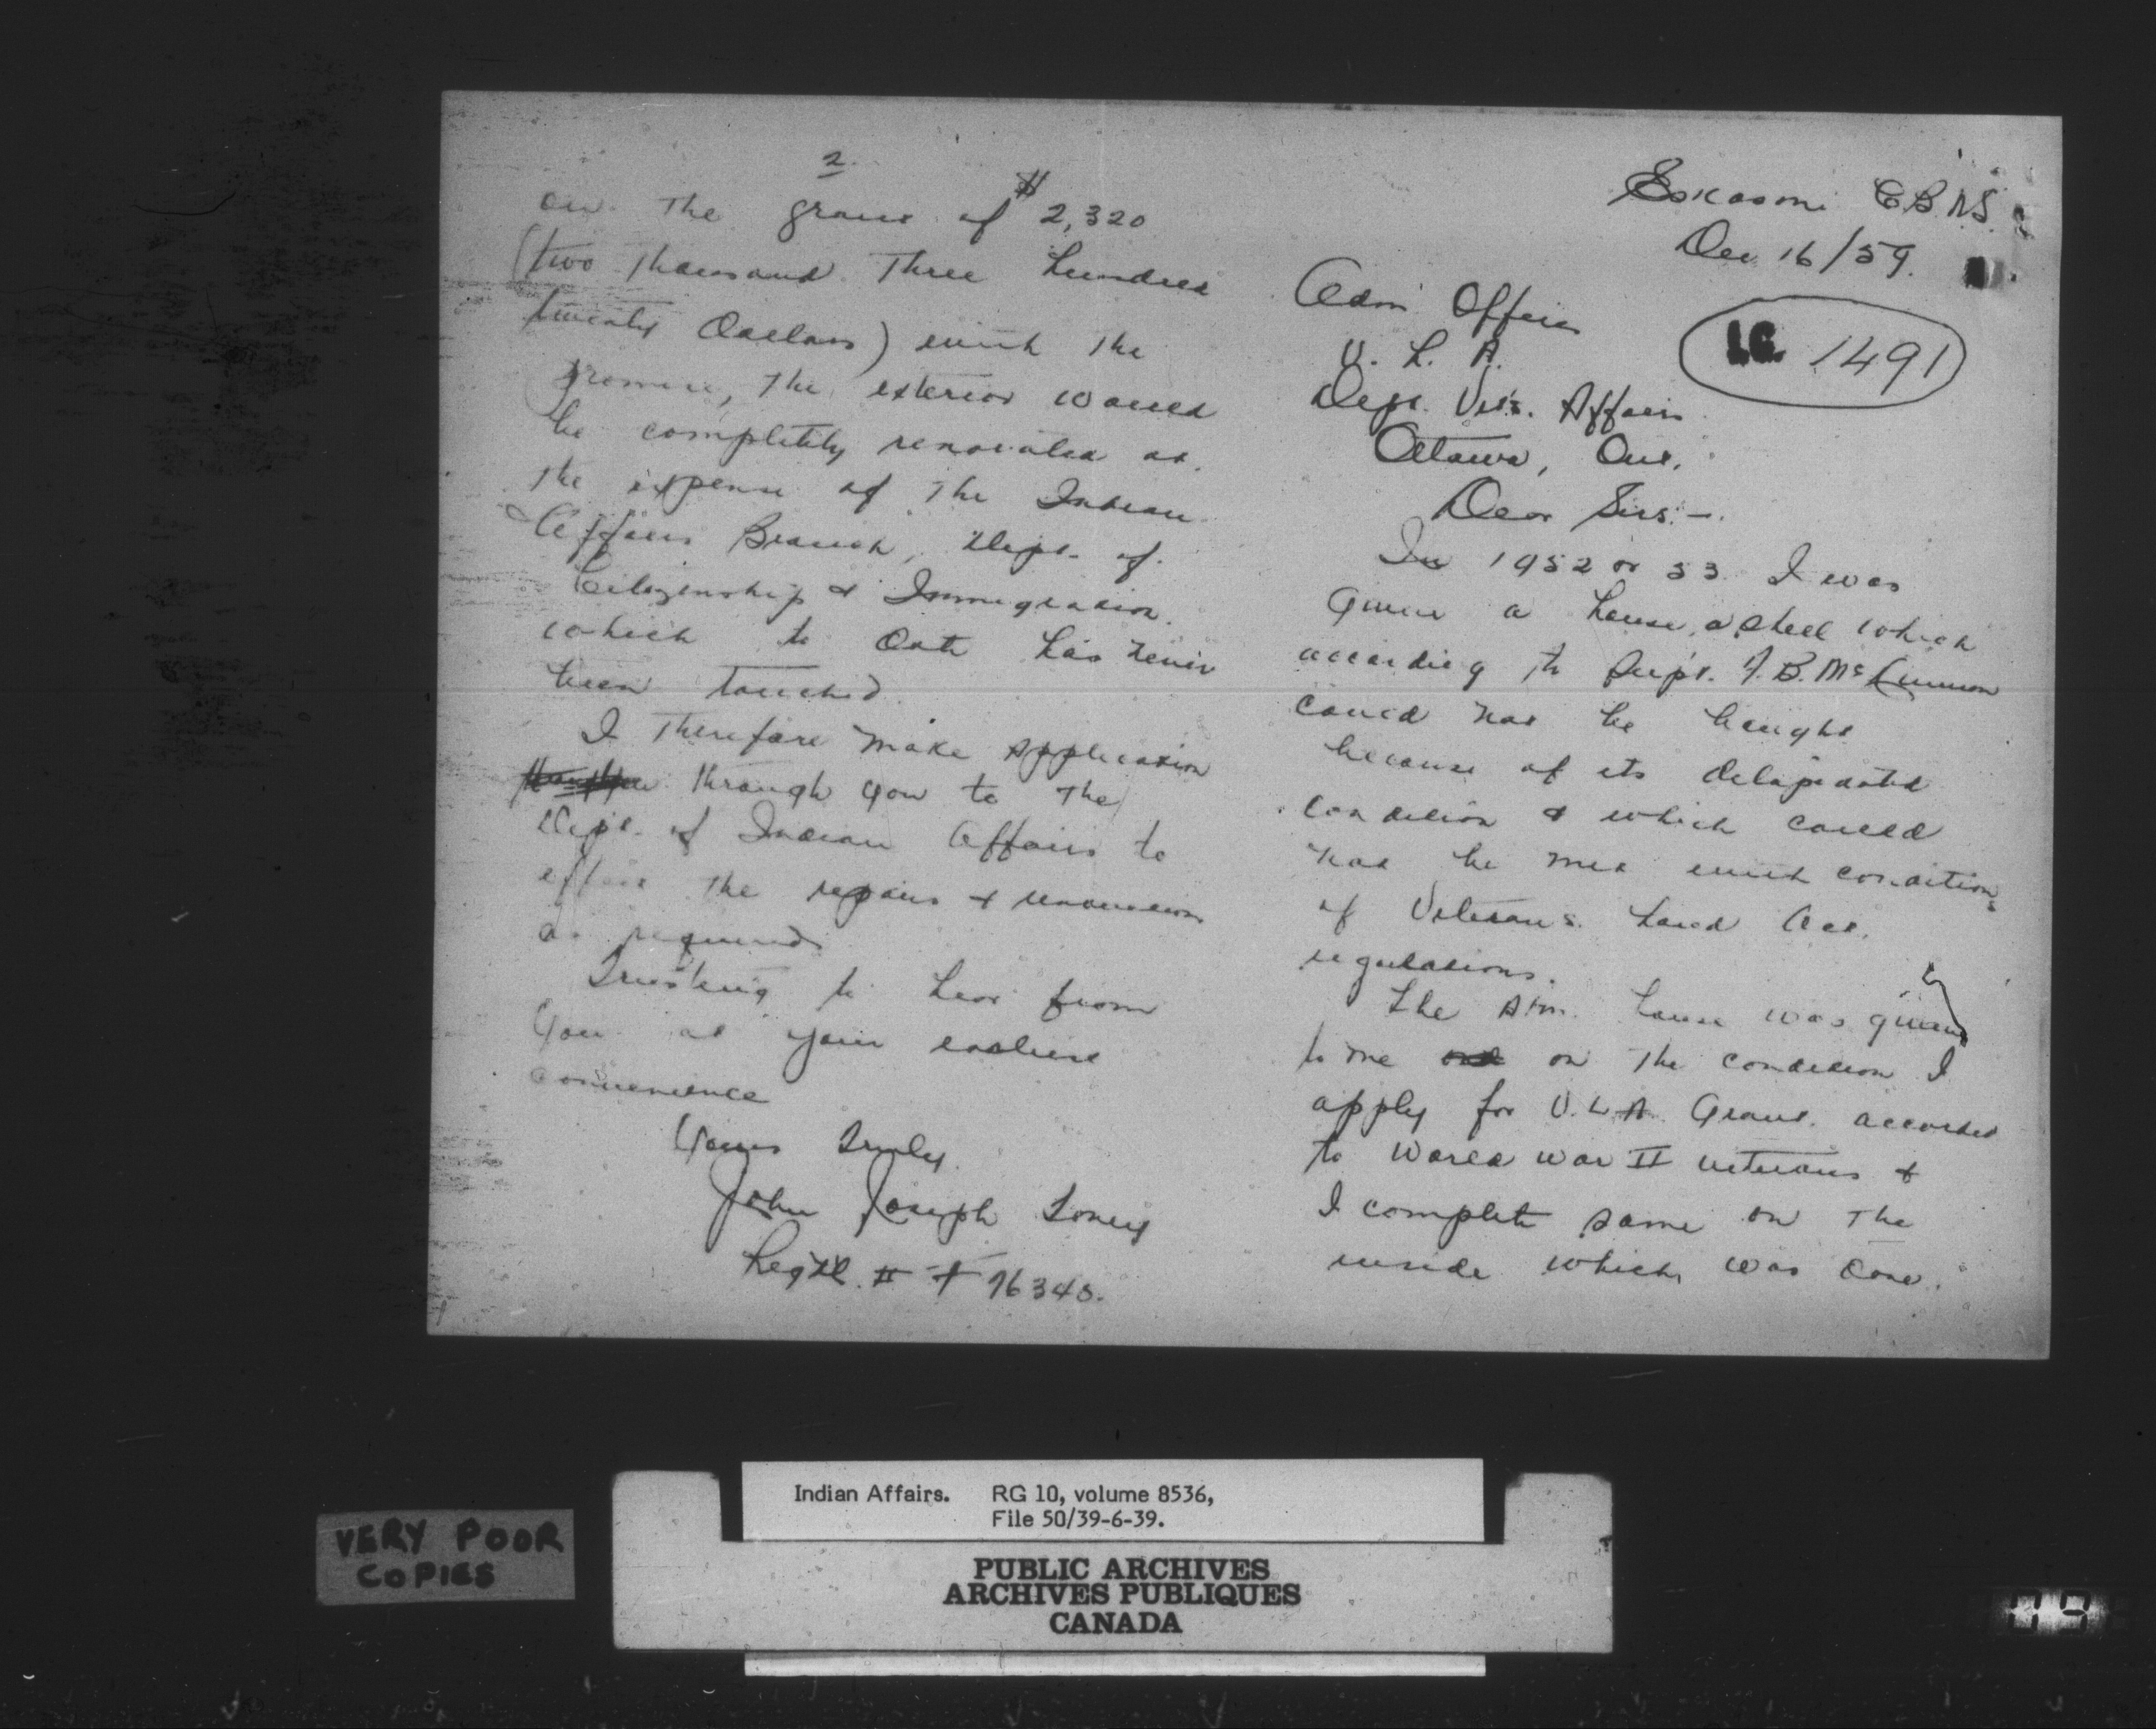 Eskasoni C.B. N.S.
Dec 16/59.
I.G. 1491
Adm Officer
V. L. A.
Dept. Vet's. Affairs
Ottawa, Ont.
Dear Sirs:-
In 1952 or 53 I was
given a house, a shell which
according to Supt. J.B. McKinnon
could not be bought
because of its delapidated
condition & which could
not be met with conditions
of Veterans Land Act.
regulations.
The house was given
to me on the condition I
apply for V.L.A. Grant. accorded
to World War II veterans &
I complete same on the
inside which was done.
2
on the grant of $2,320
(two thousand three hundred
twenty Dollars) with the
promise, the exterior would
be completely renovated at
the expense of the Indian
Affairs Branch, Dept. of
Citizenship & Immigration.
which to date has never
been touched.
I therefore make application
through you to the
Dept. of Indian Affairs to
effect the repairs & renovations
as required
Trusting to hear from
you at your earliest
convenience
Yours Truly
John Joseph Toney
Reg'tl. # F 76348.
Indian Affairs. RG 10, volume 8536,
File 50/39-6-39.
VERY POOR
COPIES
PUBLIC ARCHIVES
ARCHIVES PUBLIQUES
CANADA